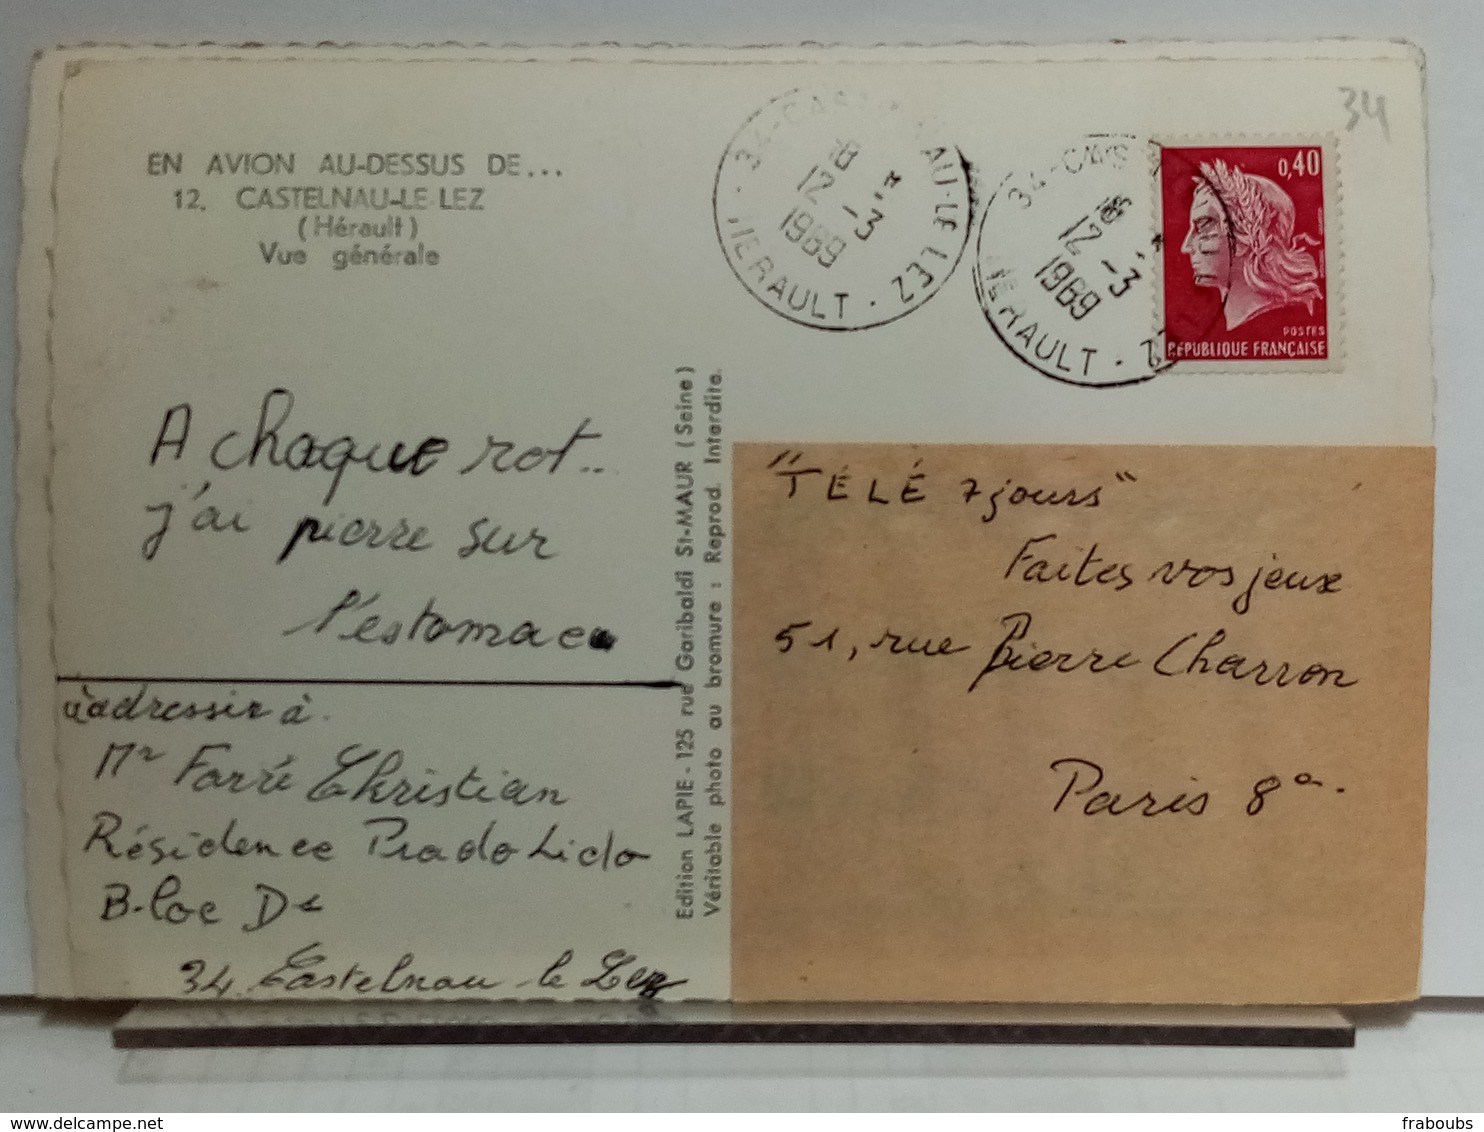 34
EN AVION AU-DESSUS DE...
12. CASTELNAU-LE-LEZ
(Hérault)
Vue générale
34-CASTELNAU-LE LEZ
18 H
12 -3
1969
HERAULT
34-CAS AU LEZ
18 H
12 -3
1969
HERAULT
0,40
POSTES
RÉPUBLIQUE FRANÇAISE
A chaque rot..
j'ai pierre sur
l'estomac
à adressir à
Mr Farré Christian
Résidence Prado Lido
B-loc D
34 Castelnau-le Lez
Edition LAPIE - 125 rue Garibaldi St-MAUR (Seine)
Véritable photo au bromure : Reprod. Interdite.
"TÉLÉ 7 jours"
Faites vos jeux
51, rue Pierre Charron
Paris 8e.
fraboubs